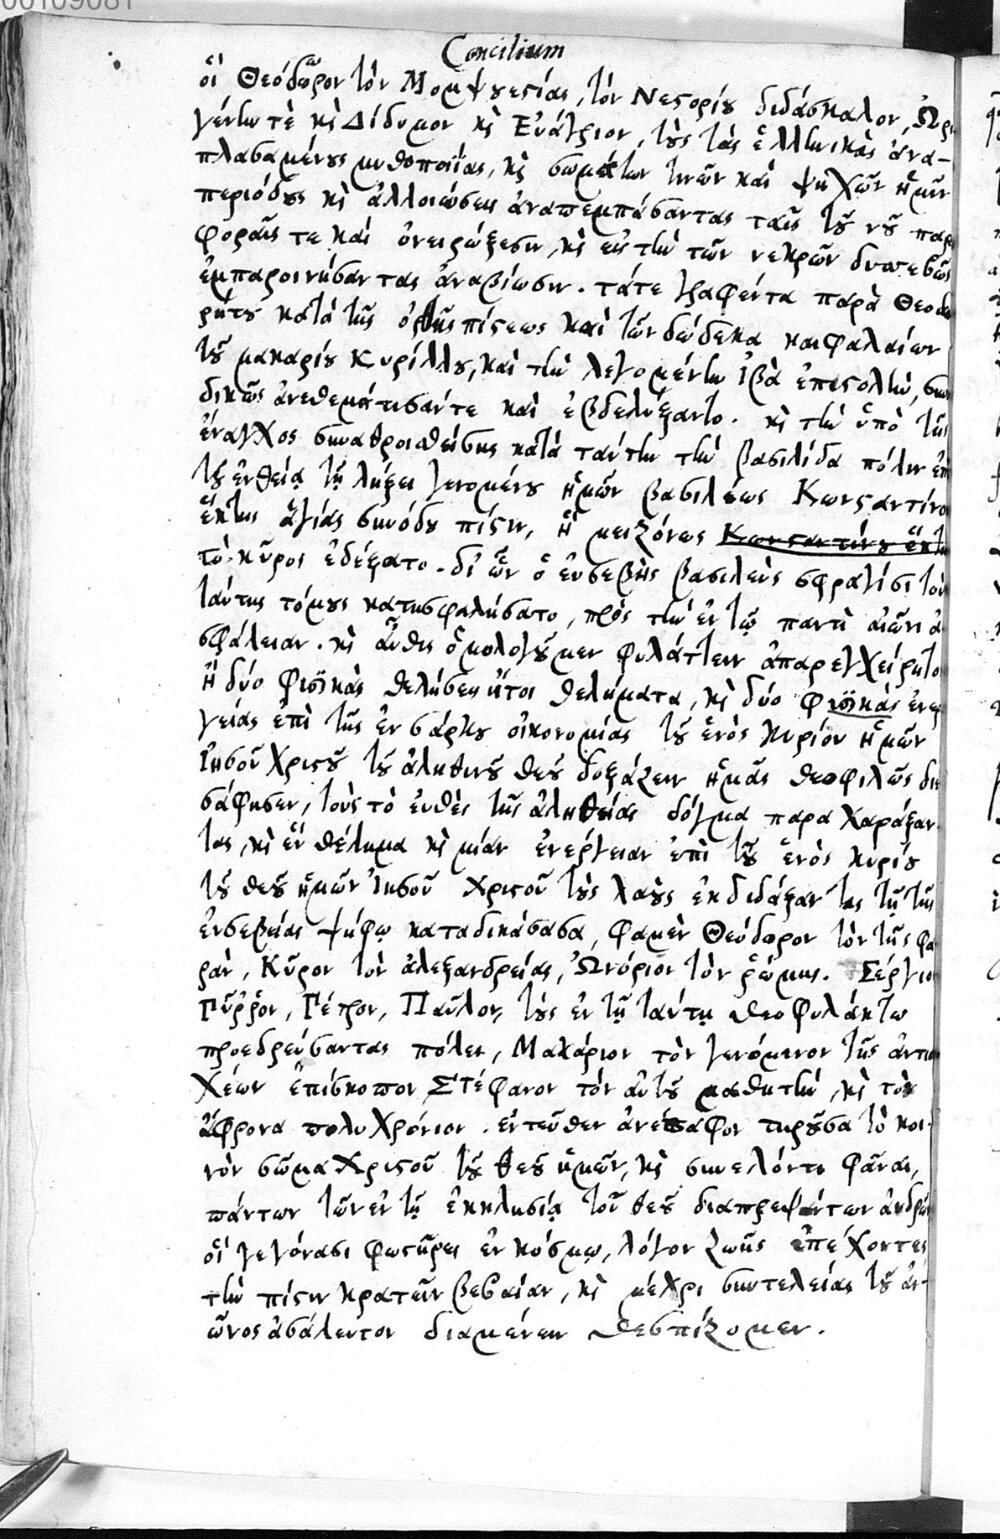 00109081
Concilium
οἳ Θεόδωρον τὸν Μομψουεστίας, τὸν Νεστορίου διδάσκαλον, Ὠρι
γένην τὲ κὶ Δίδυμον κὶ Εὐάγριον, τοὺς τὰς ἑλληνικὰς ἀνα-
πλασαμένους μυθοποιΐας, κὶ σωμάτων τινῶν καὶ ψυχῶν ἡμῖν
περιόδους κὶ ἀλλοιώσεις ἀναπεμπάσαντας ταῖς τοῦ νοῦ παρα
φοραῖς τε καὶ ὀνειρώξεσιν, κὶ εἰς τὴν τῶν νεκρῶν δυσσεβῶς
ἐμπαροινήσαντας ἀναβίωσιν. τάτε γραφέντα παρὰ Θεοδω
ρήτου κατὰ τῆς ὀρθῆς πίστεως καὶ τῶν δώδεκα κεφαλαίων
τοῦ μακαρίου Κυρίλλου, καὶ τὴν λεγομένην Ἰβὰ ἐπιστολὴν, συνο
δικῶς ἀνεθεμάτισάντε καὶ ἐβδελύξαντο. κὶ τὴν ὑπὸ τῆς
ἔναγχος συναθροισθείσης κατὰ ταύτην τὴν βασιλίδα πόλιν ἐπὶ
τοῦ ἐνθείᾳ τῇ λήξει γενομένου ἡμῶν βασιλέως Κωνσταντίνου
ἕκτης ἁγίας συνόδου πίστιν, ἣ μειζόνως Κωνσταντίνου ἕκτη
τὸ κῦρος ἐδέξατο. δι' ὧν ὁ εὐσεβὴς βασιλεὺς σφραγῖσι τοὺς
ταύτης τόμους κατησφαλήσατο, πρὸς τὴν ἐν τῷ παντὶ αἰῶνι ἀ
σφάλειαν. κὶ αὖθις ὁμολογοῦμεν φυλάττειν ἀπαρεγχείρητον
ἣ δύο φυσϊκὰς θελήσεις ἤτοι θελήματα, κὶ δύο φυσϊκὰς ἐνερ
γείας ἐπὶ τῆς ἐνσάρκου οἰκονομίας τοῦ ἑνὸς κυρίου ἡμῶν
Ἰησοῦ Χριστοῦ τοῦ ἀληθινοῦ θεοῦ δοξάζειν ἡμᾶς θεοφιλῶς δι
σάφησεν, τοὺς τὸ εὐθὲς τῆς ἀληθείας δόγμα παραχαράξαν
τας, κὶ ἓν θέλημα κὶ μίαν ἐνέργειαν ἐπὶ τοῦ ἑνὸς κυρίου
τοῦ θεοῦ ἡμῶν Ἰησοῦ Χριστοῦ τοὺς λαοὺς ἐκδιδάξαντας τῇ τῆς
εὐσεβείας ψήφῳ καταδικάσασα, φαμὲν Θεόδορον τὸν τῆς φα
ρὰν, Κῦρον τὸν ἀλεξανδρείας, Ὠνόριον τὸν ῥώμης. Σέργιον
Πύῤῥον, Πέτρον, Παῦλον, τοὺς ἐν τῇ ταύτῃ θεοφυλάκτῳ
προεδρεύσαντας πόλει, Μακάριον τὸν γενόμενον τῆς ἀντιο
χέων ἐπίσκοπον Στέφανον τὸν αὐτοῦ μαθητὴν, κὶ τὸν
ἄφρονα πολυχρόνιον. ἐντεῦθεν ἀνέπαφον τηροῦσα τὸ κοι-
νὸν σῶμα Χριστοῦ τοῦ θεοῦ ἡμῶν, κὶ συνελόντι φᾶναι,
πάντων τῶν ἐν τῇ ἐκκλησίᾳ τοῦ θεοῦ διαπρεψάντων ἀνδρῶν
οἳ γεγόνασι φωστῆρες ἐν κόσμῳ, λόγον ζωῆς ἐπέχοντες
τὴν πίστιν κρατεῖν βεβαίαν, κὶ μέχρι συντελείας τοῦ αἰ-
ῶνος ἀσάλευτον διαμένειν θεσπίζομεν.